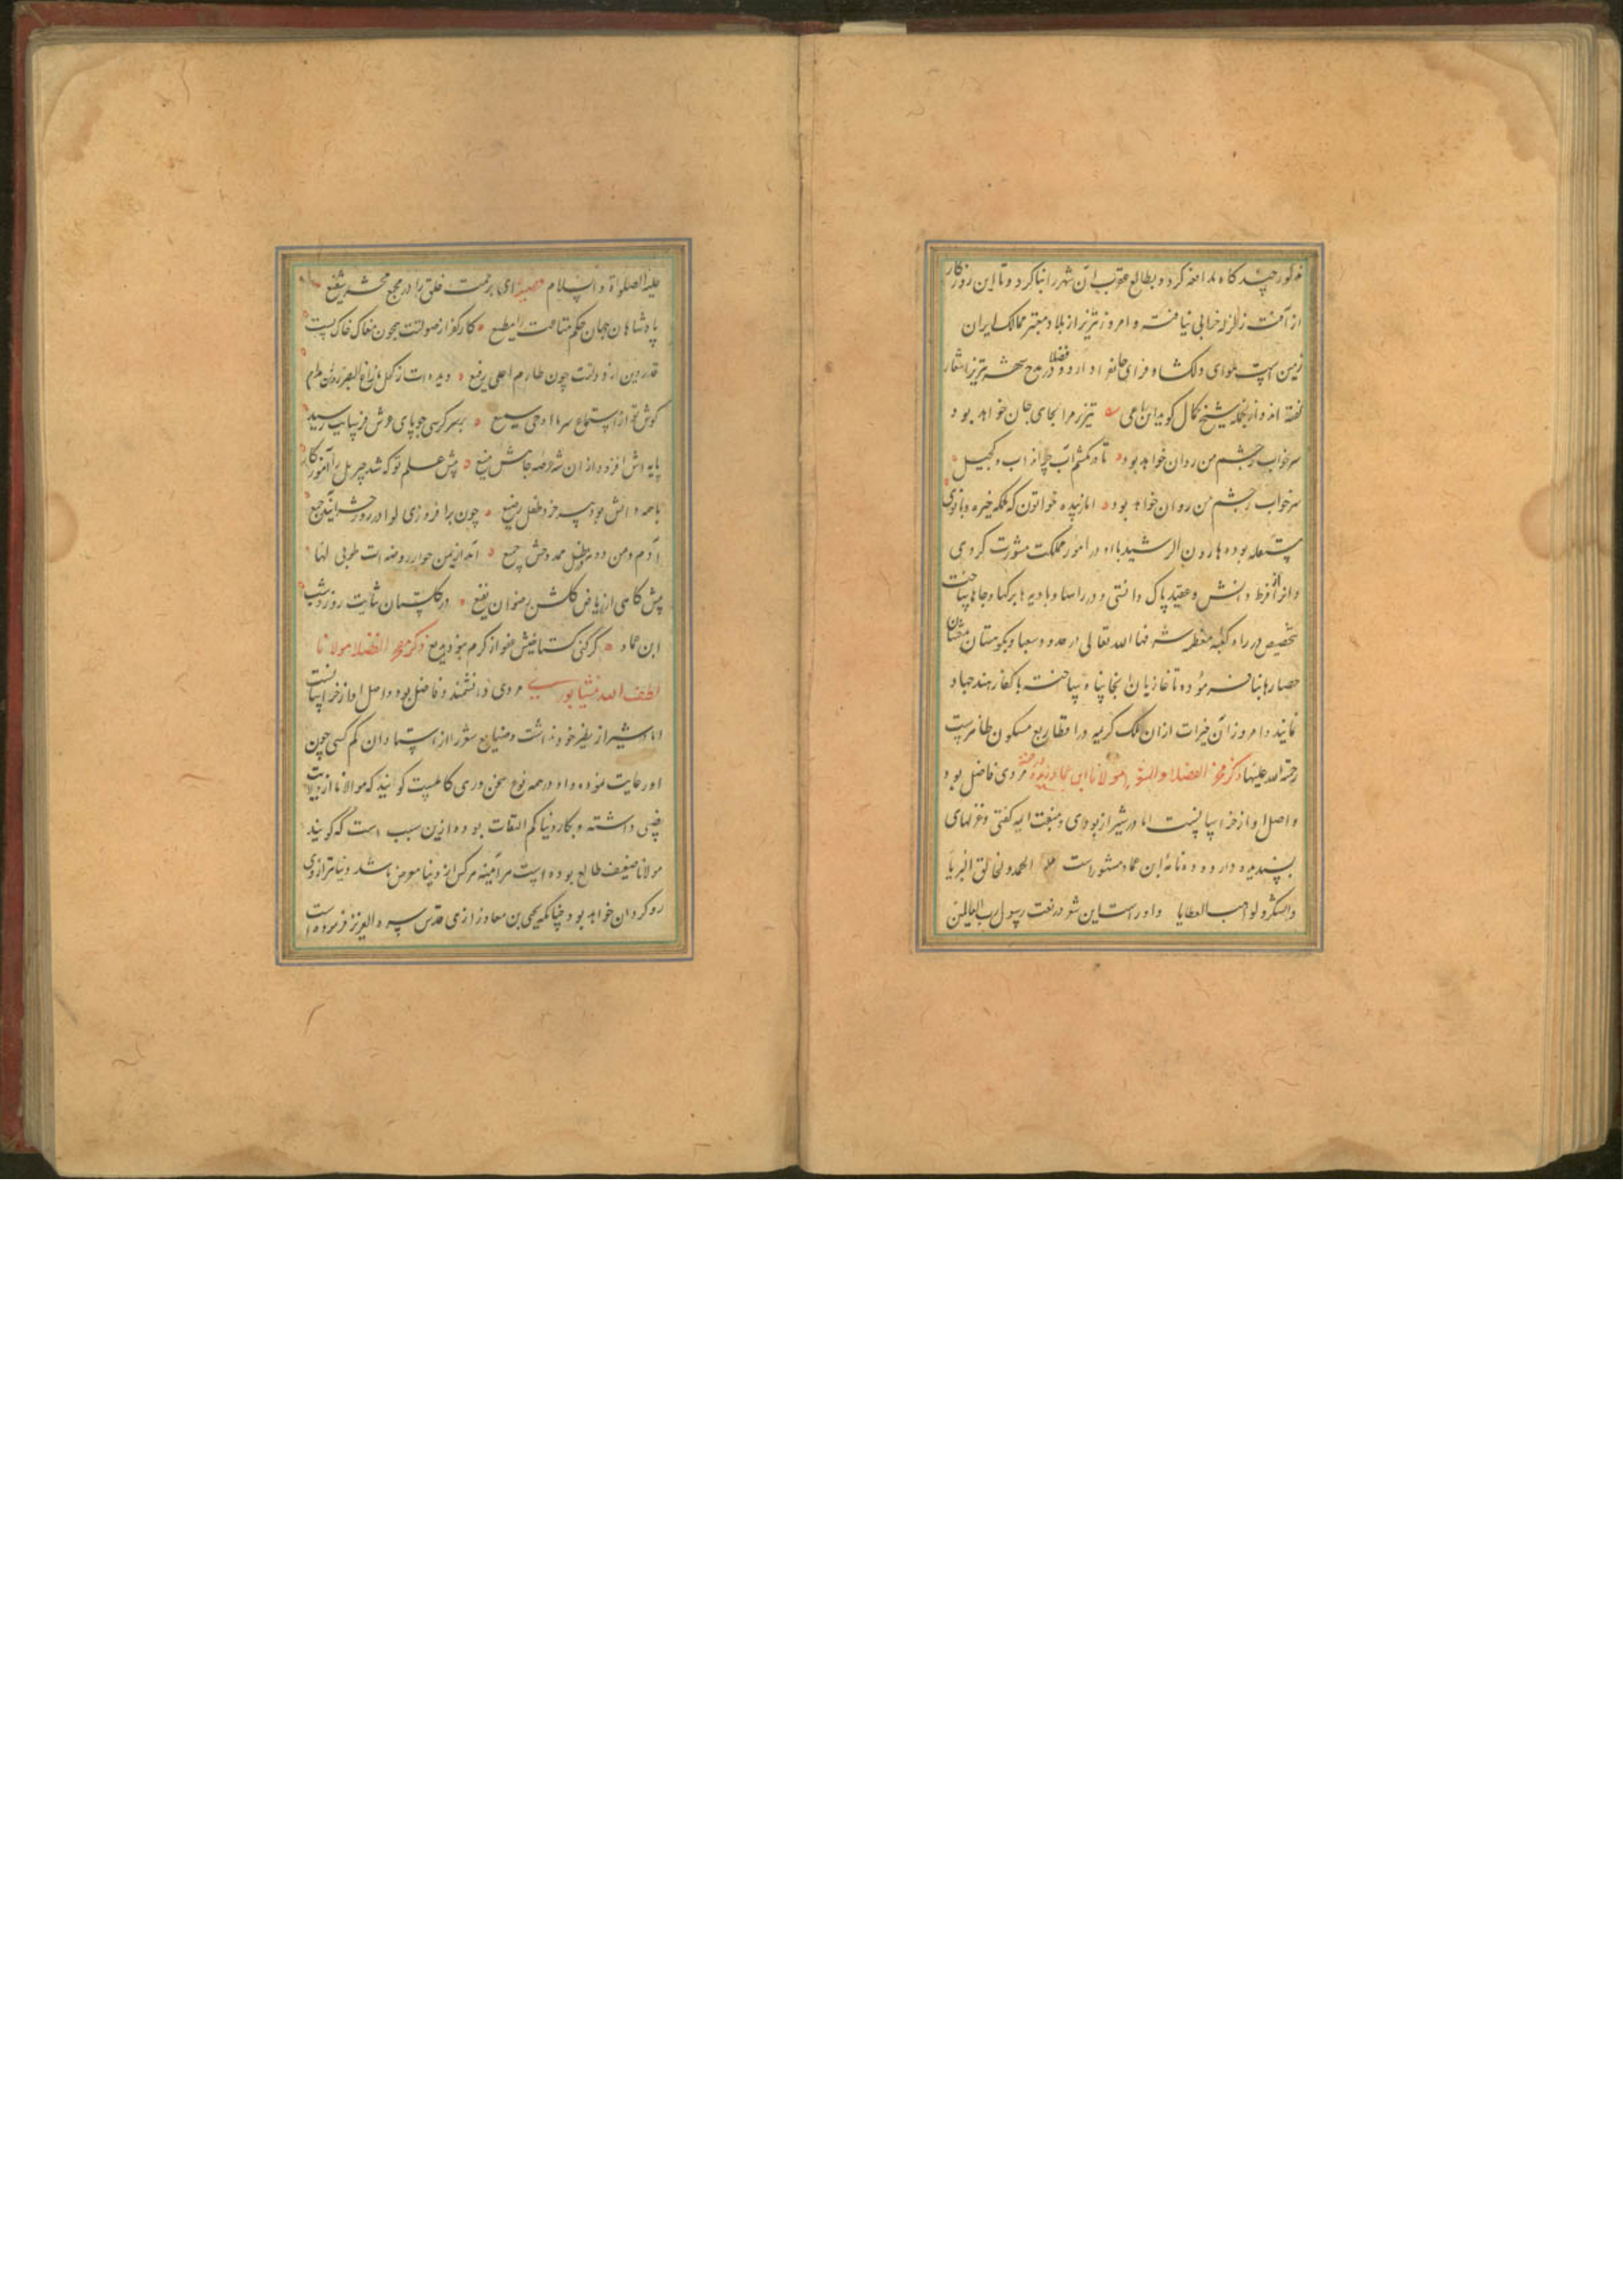 مذکور چند کاه ملاحظه کرد و بطالع عقرب ان شهر را بنا کرد و تا این روزکار
از آفت زلزله خرابی نیافته و امروز تبریز از بلاد معتبر ممالک ایران
زمین است هوای دلکشا و فزای جانفزا دارد و فضلا در مدح شهر تبریز اشعار
کفته اند و از انجمله شیخ کمال کوید این رباعی تبریز مرا بجای جان خواهد بود
سرخاب ز چشم من روان خواهد بود تا در نکشم آب چرانداب و کجیل
سرخاب ز چشم من روان خواهد بود اما زبیده خواتون که ملکه خیره و بانوی
بوده هارون الرشید با او در امور مملکت مشورت کردی
و او را از فرط دانش و عقیده پاک دانستی و در راهها و بادیه ها برکها و چاهها ساخت
تخصیص در راه کعبه معظمه شرفها الله تعالی در حدود و کوهستان
حصارها بنا فرموده تا غازیان انجا پناه ساخته با کفار هند جهاد
نمایند و امروز آن خیرات از ان ملک کریمه در اقطار ربع مسکون ظاهرست
رحمة الله علیها ذکر مفخر الفضلا مولانا ابن عماد مردی فاضل بود
و اصل او از خراسانست اما در شیراز بودی و منقبت ایمه کفتی و غزلهای
پسندیده دارد و ده نامه ابن عماد مشهور است الحمد لخالق البرایا
والشکر لواهب العطایا و او راست این شعر در نعت رسول رب العالمین
علیه الصلواة و السلام قصیده ای برحمت خلق را در مجمع محشر شفیع
پادشاهان جهان حکم متاعت را مطیع کار کفر از صولتت همچون مغاک خاک پست
قدر دین از دولتت چون طارم اعلی رفیع دیده ات از کحل مازاغ البصر روشن مدام
کوش تو از استماع سر ما اوحی سمیع بر سر کرسی چو پای عرش فرسایت رسید
پایه اش افزود از ان شد عرصه جاهش منیع پیش علم تو که شد جبریل را آموزکار
با همه دانش بود پیر خرد طفل رضیع چون بر افروزی لوا در روز حشر ایند جمع
آدم و من دونه در ظل ممدودش جمیع آمد از یمن جوار روضه ات طوبی لها
پیش کاهی از ریاض کلشن رضوان بقیع در کلستان ثنایت روز و شب
ابن عماد کر کند کستاخیش عفو از کرم نبود بدیع ذکر مفخر الفضلا مولانا
لطف الله نیشابوری مردی دانشمند و فاضل بود و اصل او از خراسانست
اما در شیراز نظیر خود نداشت و صنایع شعر را از استادان کم کسی چون
او رعایت نموده و او در همه نوع سخن وری کاملست کویند که مولانا از دنیا
داشته و بکار دنیا کم التفات بوده ازین سبب است که کویند
مولانا ضعیف طالع بوده است هر آینه هر کس از دنیا معرض باشد دنیا نیز از وی
رو کردان خواهد بود چنانکه یحیی بن معاذ رازی قدس سره العزیز فرموده است